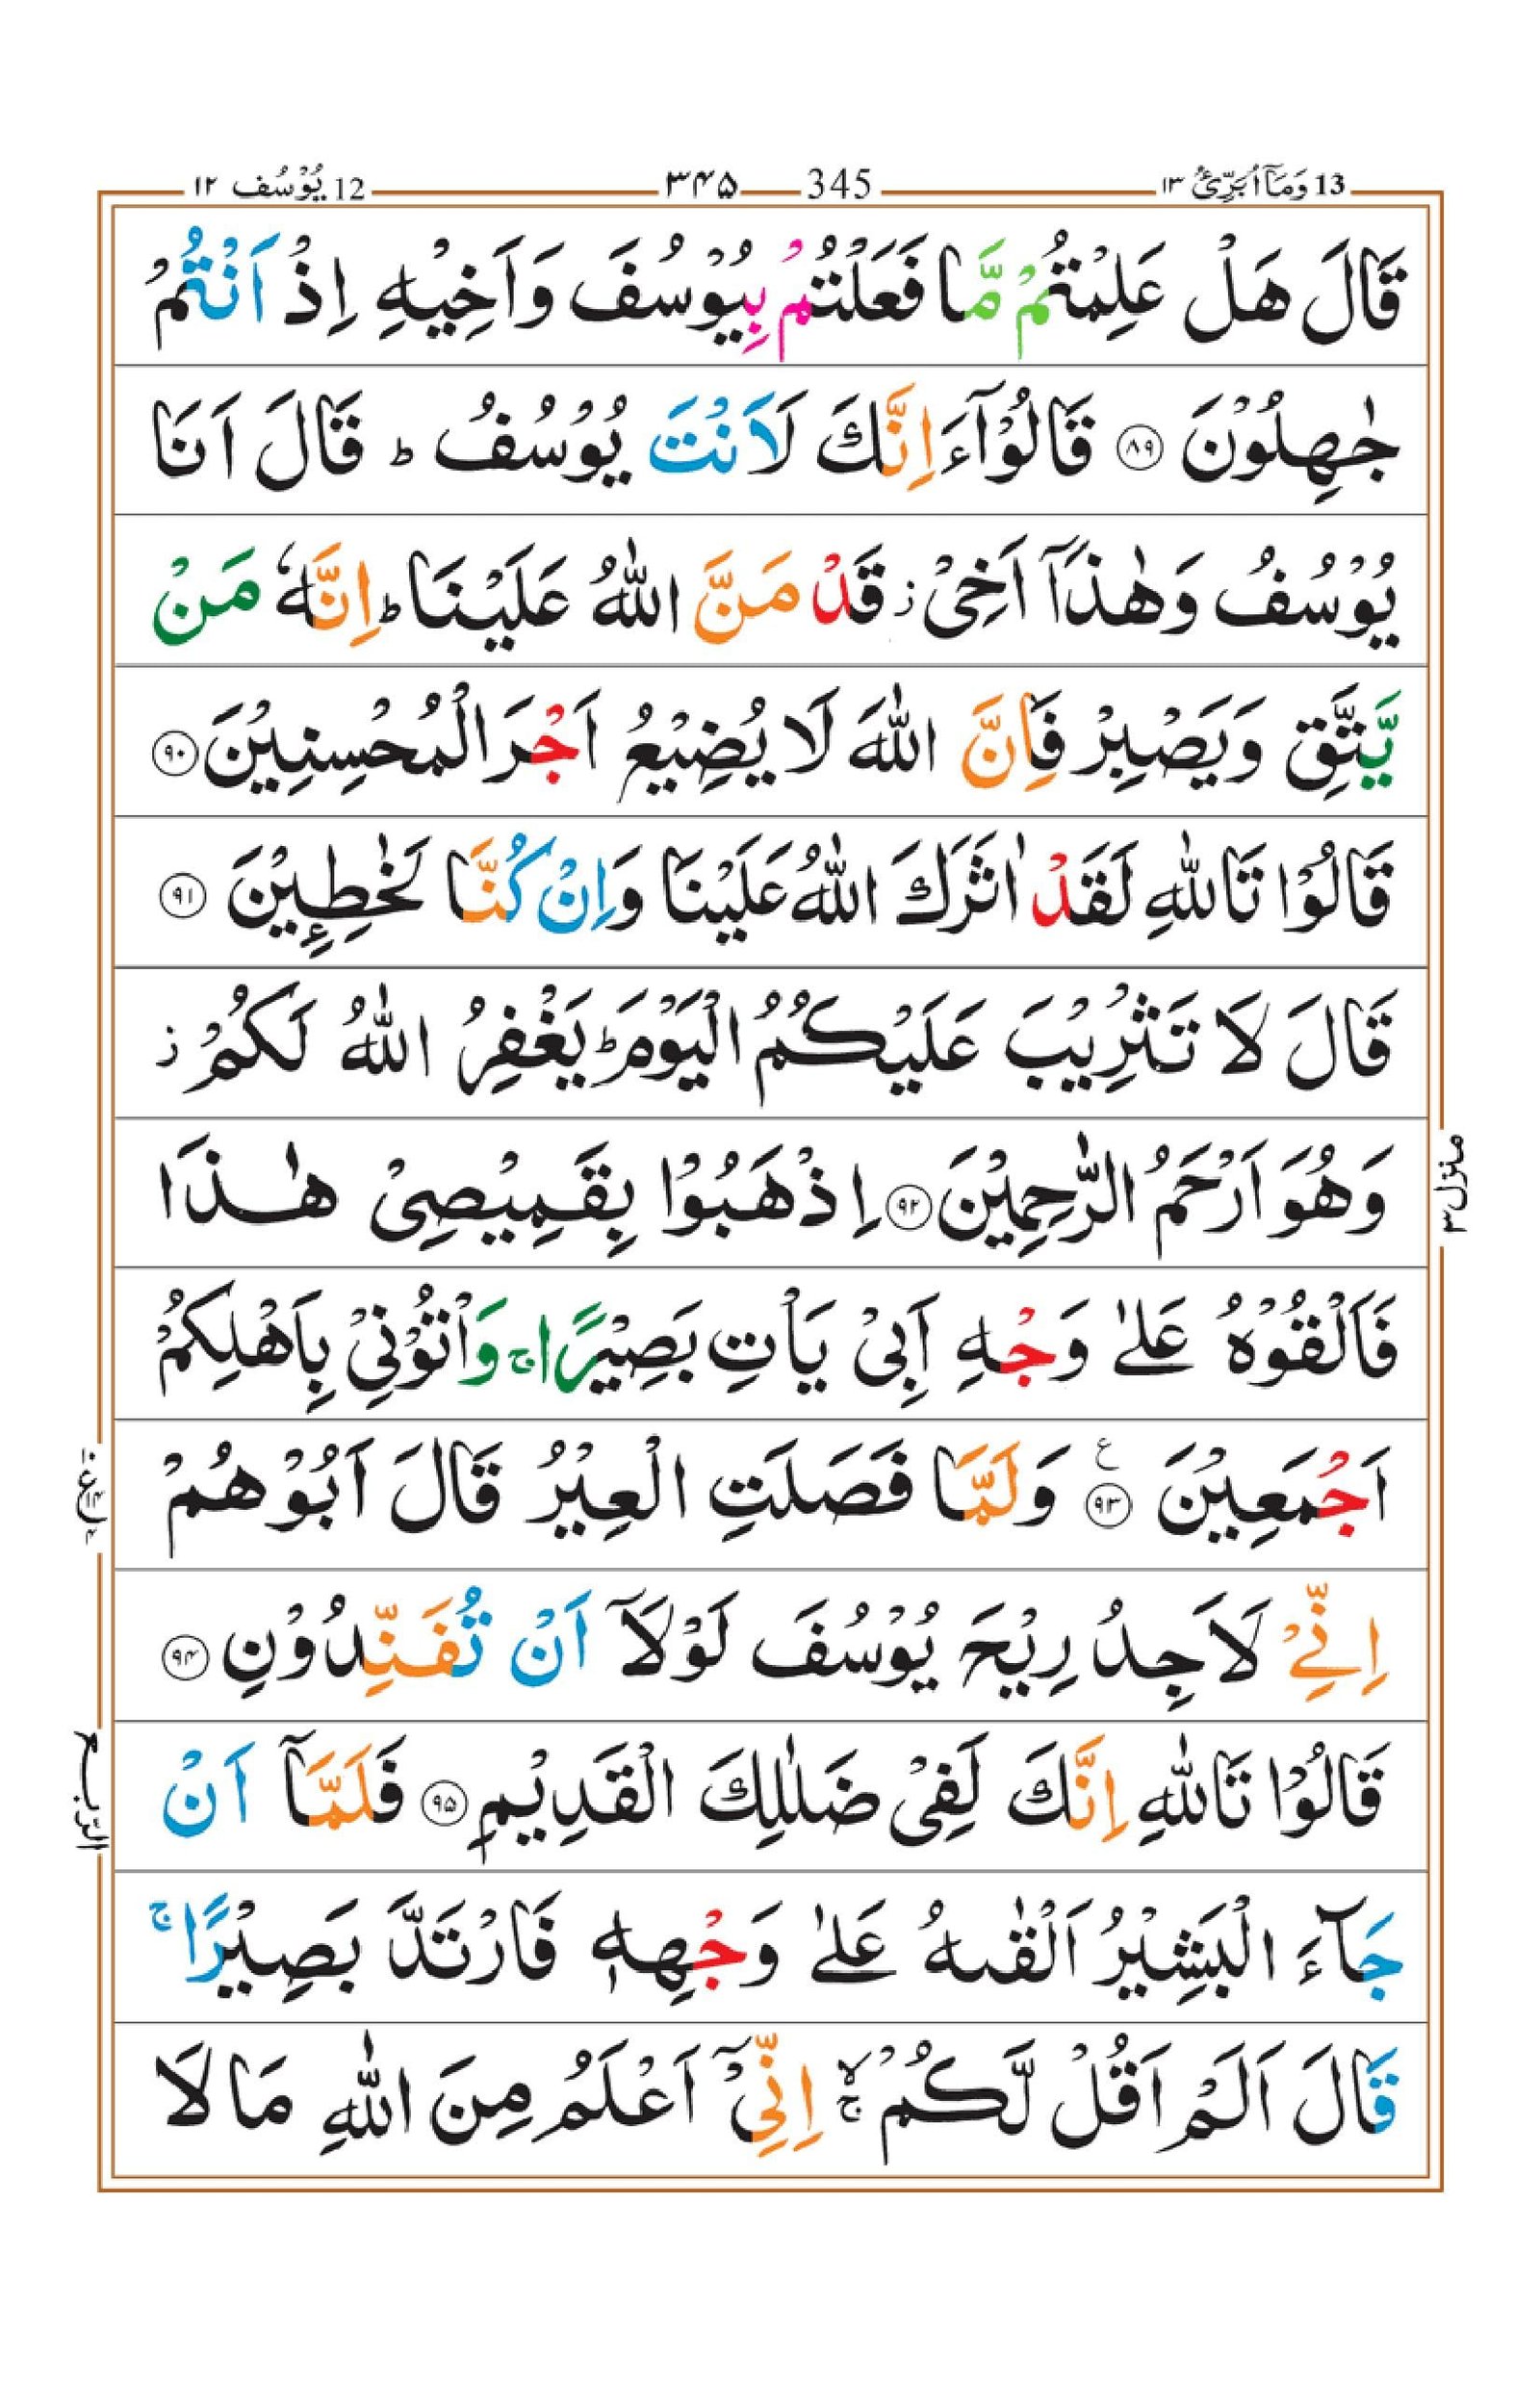 13 وَمَآ اُبَرِّئُ ١٣
345 ۳۴۵
12 يُوْسُف ١٢
قَالَ هَلْ عَلِمْتُمْ مَّا فَعَلْتُمْ بِيُوْسُفَ وَاَخِيْهِ اِذْ اَنْتُمْ
جٰهِلُوْنَ ﴿۸۹﴾ قَالُوْٓا ءَاِنَّكَ لَاَنْتَ يُوْسُفُ ؕ قَالَ اَنَا
يُوْسُفُ وَهٰذَاۤ اَخِىْ ز قَدْ مَنَّ اللّٰهُ عَلَيْنَا ؕ اِنَّهٗ مَنْ
يَّتَّقِ وَيَصْبِرْ فَاِنَّ اللّٰهَ لَا يُضِيْعُ اَجْرَ الْمُحْسِنِيْنَ ﴿۹۰﴾
قَالُوْا تَاللّٰهِ لَقَدْ اٰثَرَكَ اللّٰهُ عَلَيْنَا وَاِنْ كُنَّا لَخٰطِـِٕيْنَ ﴿۹۱﴾
قَالَ لَا تَثْرِيْبَ عَلَيْكُمُ الْيَوْمَ ؕ يَغْفِرُ اللّٰهُ لَكُمْ ز
وَهُوَ اَرْحَمُ الرّٰحِمِيْنَ ﴿۹۲﴾ اِذْهَبُوْا بِقَمِيْصِىْ هٰذَا
فَاَلْقُوْهُ عَلٰى وَجْهِ اَبِىْ يَاْتِ بَصِيْرًا ۚ وَاْتُوْنِىْ بِاَهْلِكُمْ
اَجْمَعِيْنَ ﴿۹۳﴾ ع وَلَمَّا فَصَلَتِ الْعِيْرُ قَالَ اَبُوْهُمْ
اِنِّىْ لَاَجِدُ رِيْحَ يُوْسُفَ لَوْلَاۤ اَنْ تُفَنِّدُوْنِ ﴿۹۴﴾
قَالُوْا تَاللّٰهِ اِنَّكَ لَفِىْ ضَلٰلِكَ الْقَدِيْمِ ﴿۹۵﴾ فَلَمَّاۤ اَنْ
جَآءَ الْبَشِيْرُ اَلْقٰىهُ عَلٰى وَجْهِهٖ فَارْتَدَّ بَصِيْرًا ۚ
قَالَ اَلَمْ اَقُلْ لَّكُمْ ۙۚ اِنِّىْۤ اَعْلَمُ مِنَ اللّٰهِ مَا لَا
منزل ۳
الرّبع